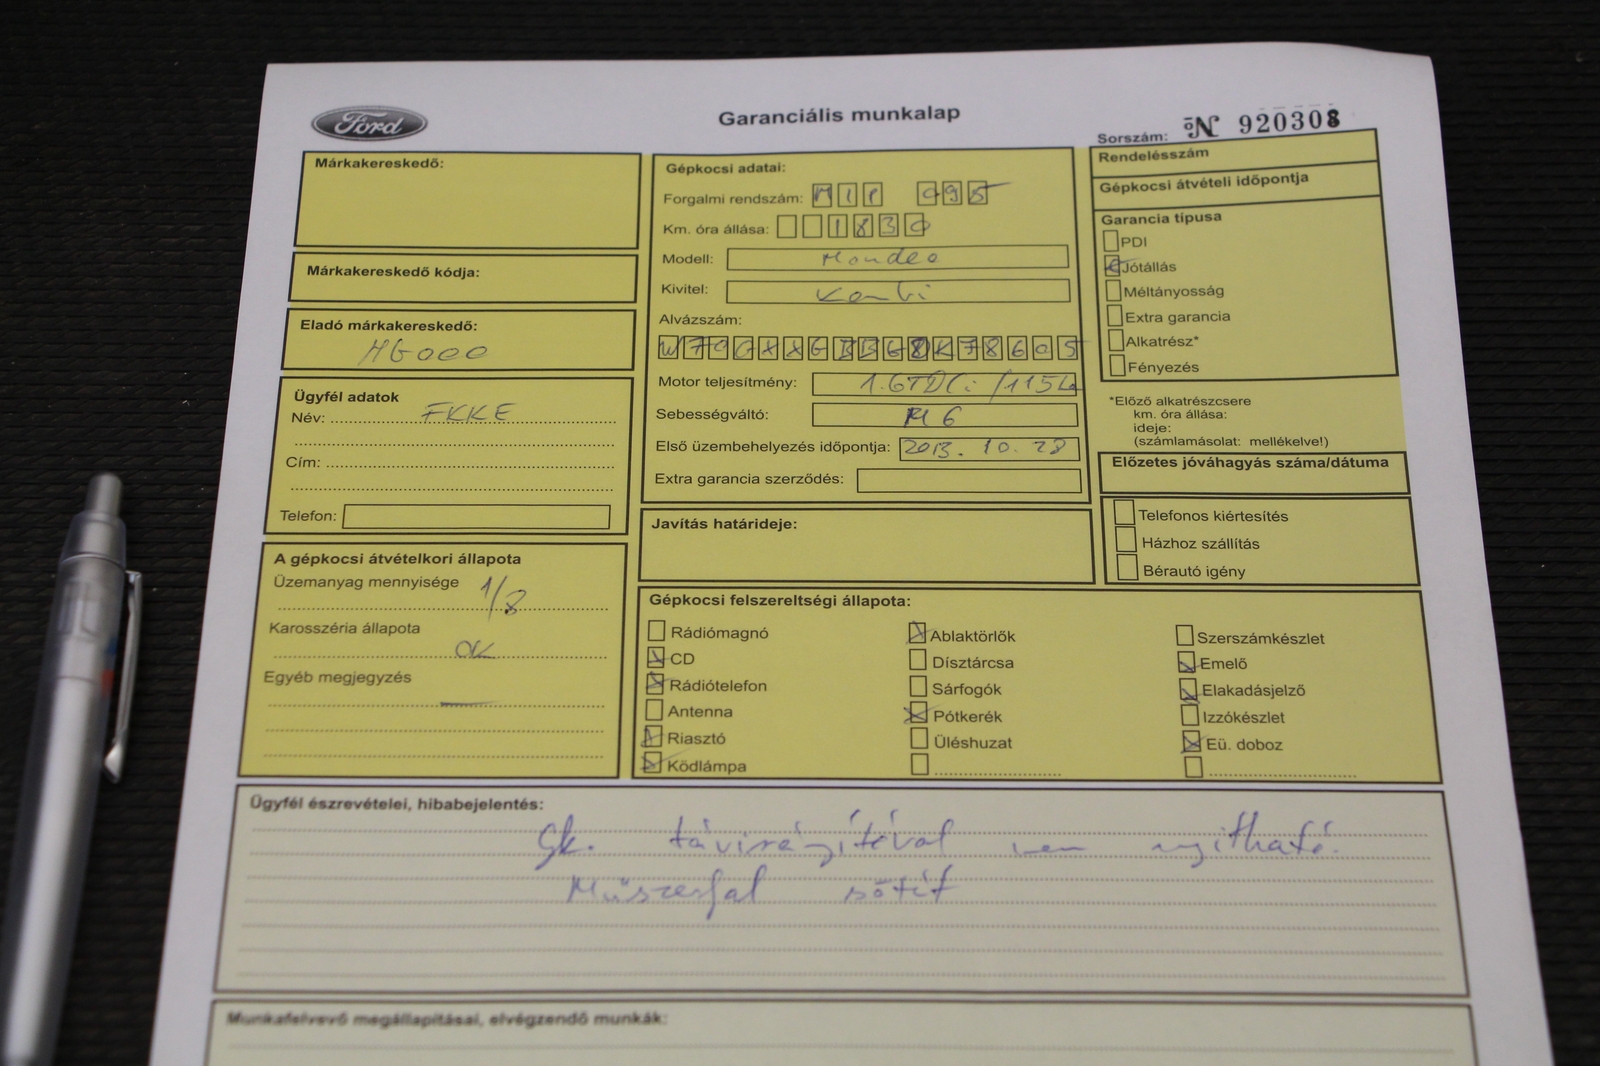 Ford
Garanciális munkalap
Sorszám: № 920308
Márkakereskedő:
Márkakereskedő kódja:
Eladó márkakereskedő:
HG000
Ügyfél adatok
Név: FKKE
Cím:
Telefon:
A gépkocsi átvételkori állapota
Üzemanyag mennyisége 1/8
Karosszéria állapota
OK
Egyéb megjegyzés
—
Gépkocsi adatai:
Forgalmi rendszám: MIP 095
Km. óra állása: 1830
Modell: Mondeo
Kivitel: Kombi
Alvázszám:
Motor teljesítmény: 1.6TDCi /115Le
Sebességváltó: M6
Első üzembehelyezés időpontja: 2013. 10. 28
Extra garancia szerződés:
Javítás határideje:
Rendelésszám
Gépkocsi átvételi időpontja
Garancia típusa
PDI
Jótállás
Méltányosság
Extra garancia
Alkatrész*
Fényezés
*Előző alkatrészcsere
km. óra állása:
ideje:
(számlamásolat: mellékelve!)
Előzetes jóváhagyás száma/dátuma
Telefonos kiértesítés
Házhoz szállítás
Bérautó igény
Gépkocsi felszereltségi állapota:
Rádiómagnó
CD
Rádiótelefon
Antenna
Riasztó
Ködlámpa
Ablaktörlők
Dísztárcsa
Sárfogók
Pótkerék
Üléshuzat
Szerszámkészlet
Emelő
Elakadásjelző
Izzókészlet
Eü. doboz
Ügyfél észrevételei, hibabejelentés:
Gk. távirányítóval nem nyitható.
Műszerfal sötét
Munkafelvevő megállapításai, elvégzendő munkák: